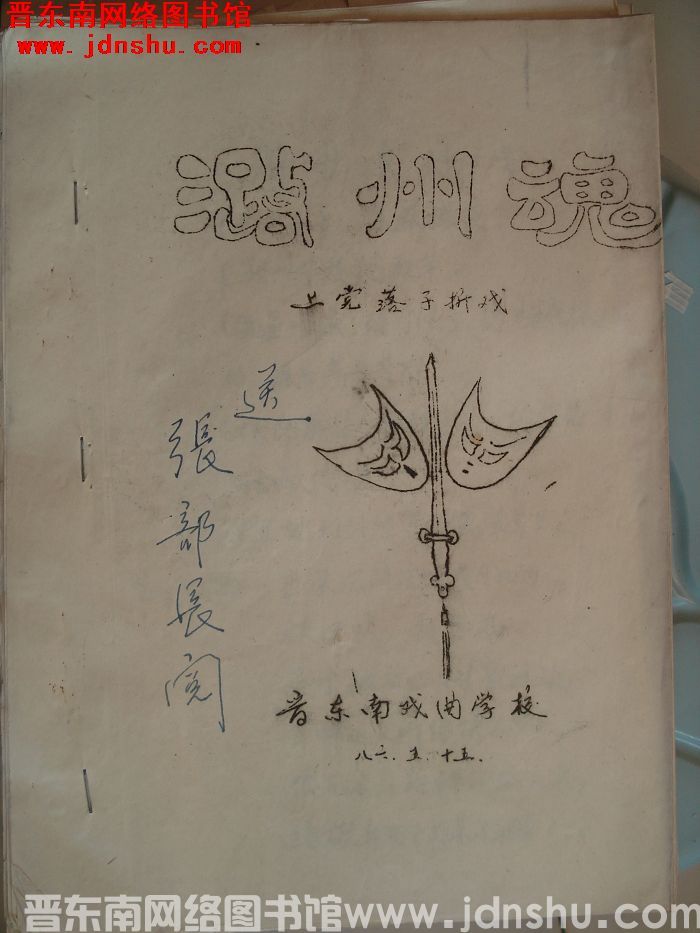 晋东南网络图书馆
www.jdnshu.com
潞州魂
上党落子折戏
送
張部長阅
晋东南戏曲学校
八六.五.十五.
晋东南网络图书馆www.jdnshu.com